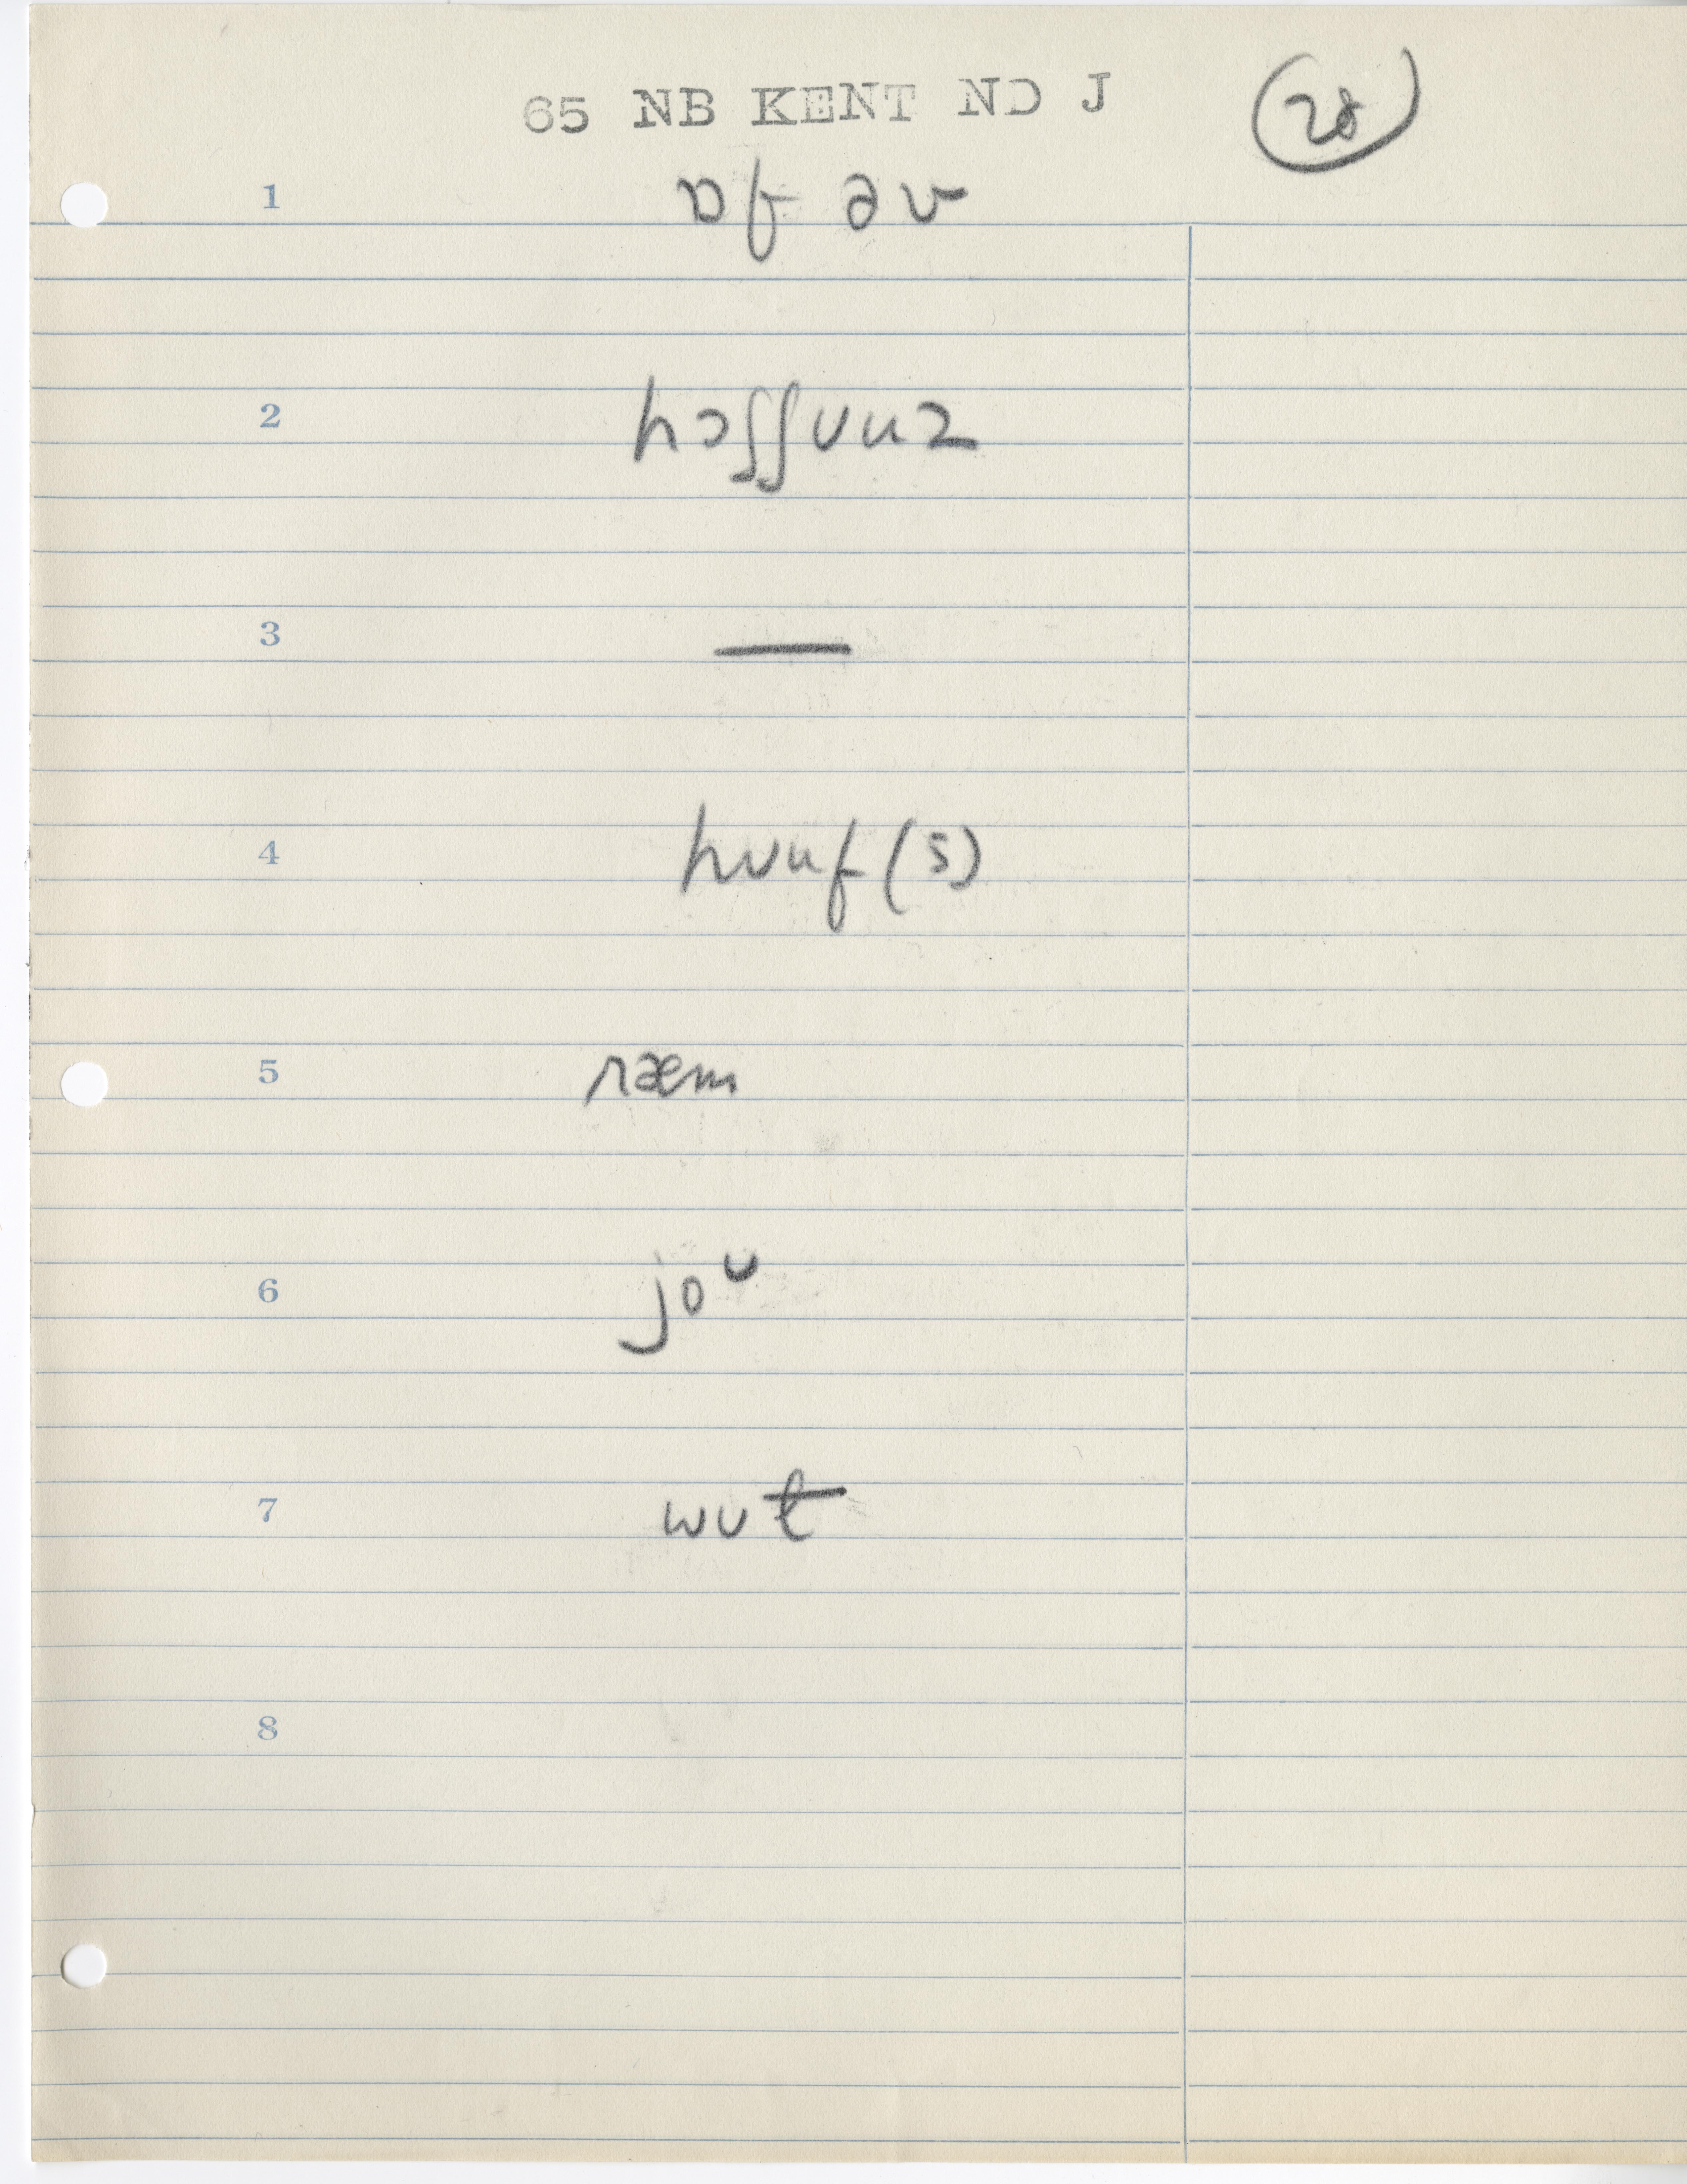 65 NB KENT ND J (28)
1 ɒf əv
2 hɔʃʃʊuz
3 —
4 hʊuf(s)
5 ræm
6 joᴗ
7 wʊt
8